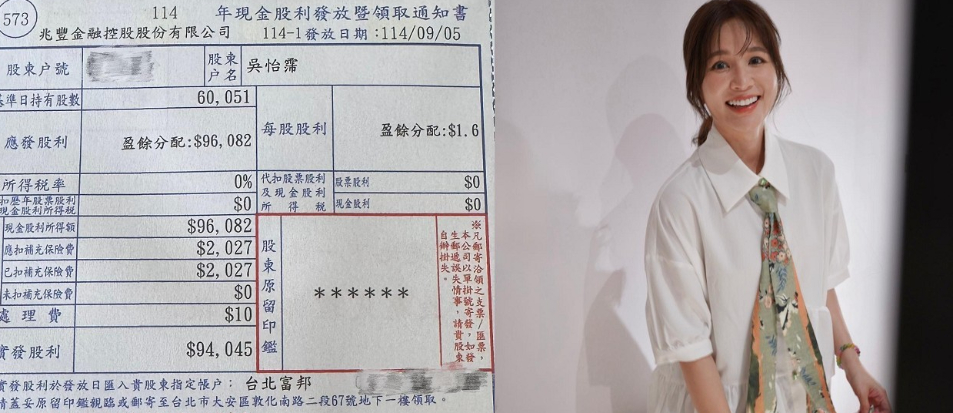 573
114 年現金股利發放暨領取通知書
兆豐金融控股股份有限公司 114-1發放日期:114/09/05
股東户號
股東户名 吳怡霈
基準日持有股數 60,051
應發股利 盈餘分配:$96,082
每股股利 盈餘分配:$1.6
所得税率 0%
扣歷年股票股利現金股利所得税 $0
代扣股票股利及現金股利所得税
股票股利 $0
現金股利 $0
現金股利所得額 $96,082
應扣補充保險費 $2,027
已扣補充保險費 $2,027
未扣補充保險費 $0
處理費 $10
實發股利 $94,045
股東原留印鑑
******
※凡郵寄洽領之支票/匯票,
本公司以單掛號寄發,如發
生郵遞誤失情事,請貴股東
自辦掛失。
實發股利於發放日匯入貴股東指定帳户: 台北富邦
請蓋妥原留印鑑親臨或郵寄至台北市大安區敦化南路二段67號地下一樓領取。